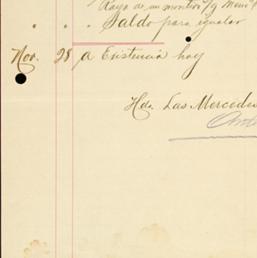 de un montón
" " Saldo para igualar
Nov. 28 a Existencia hoy
Hda. Las Mercedes